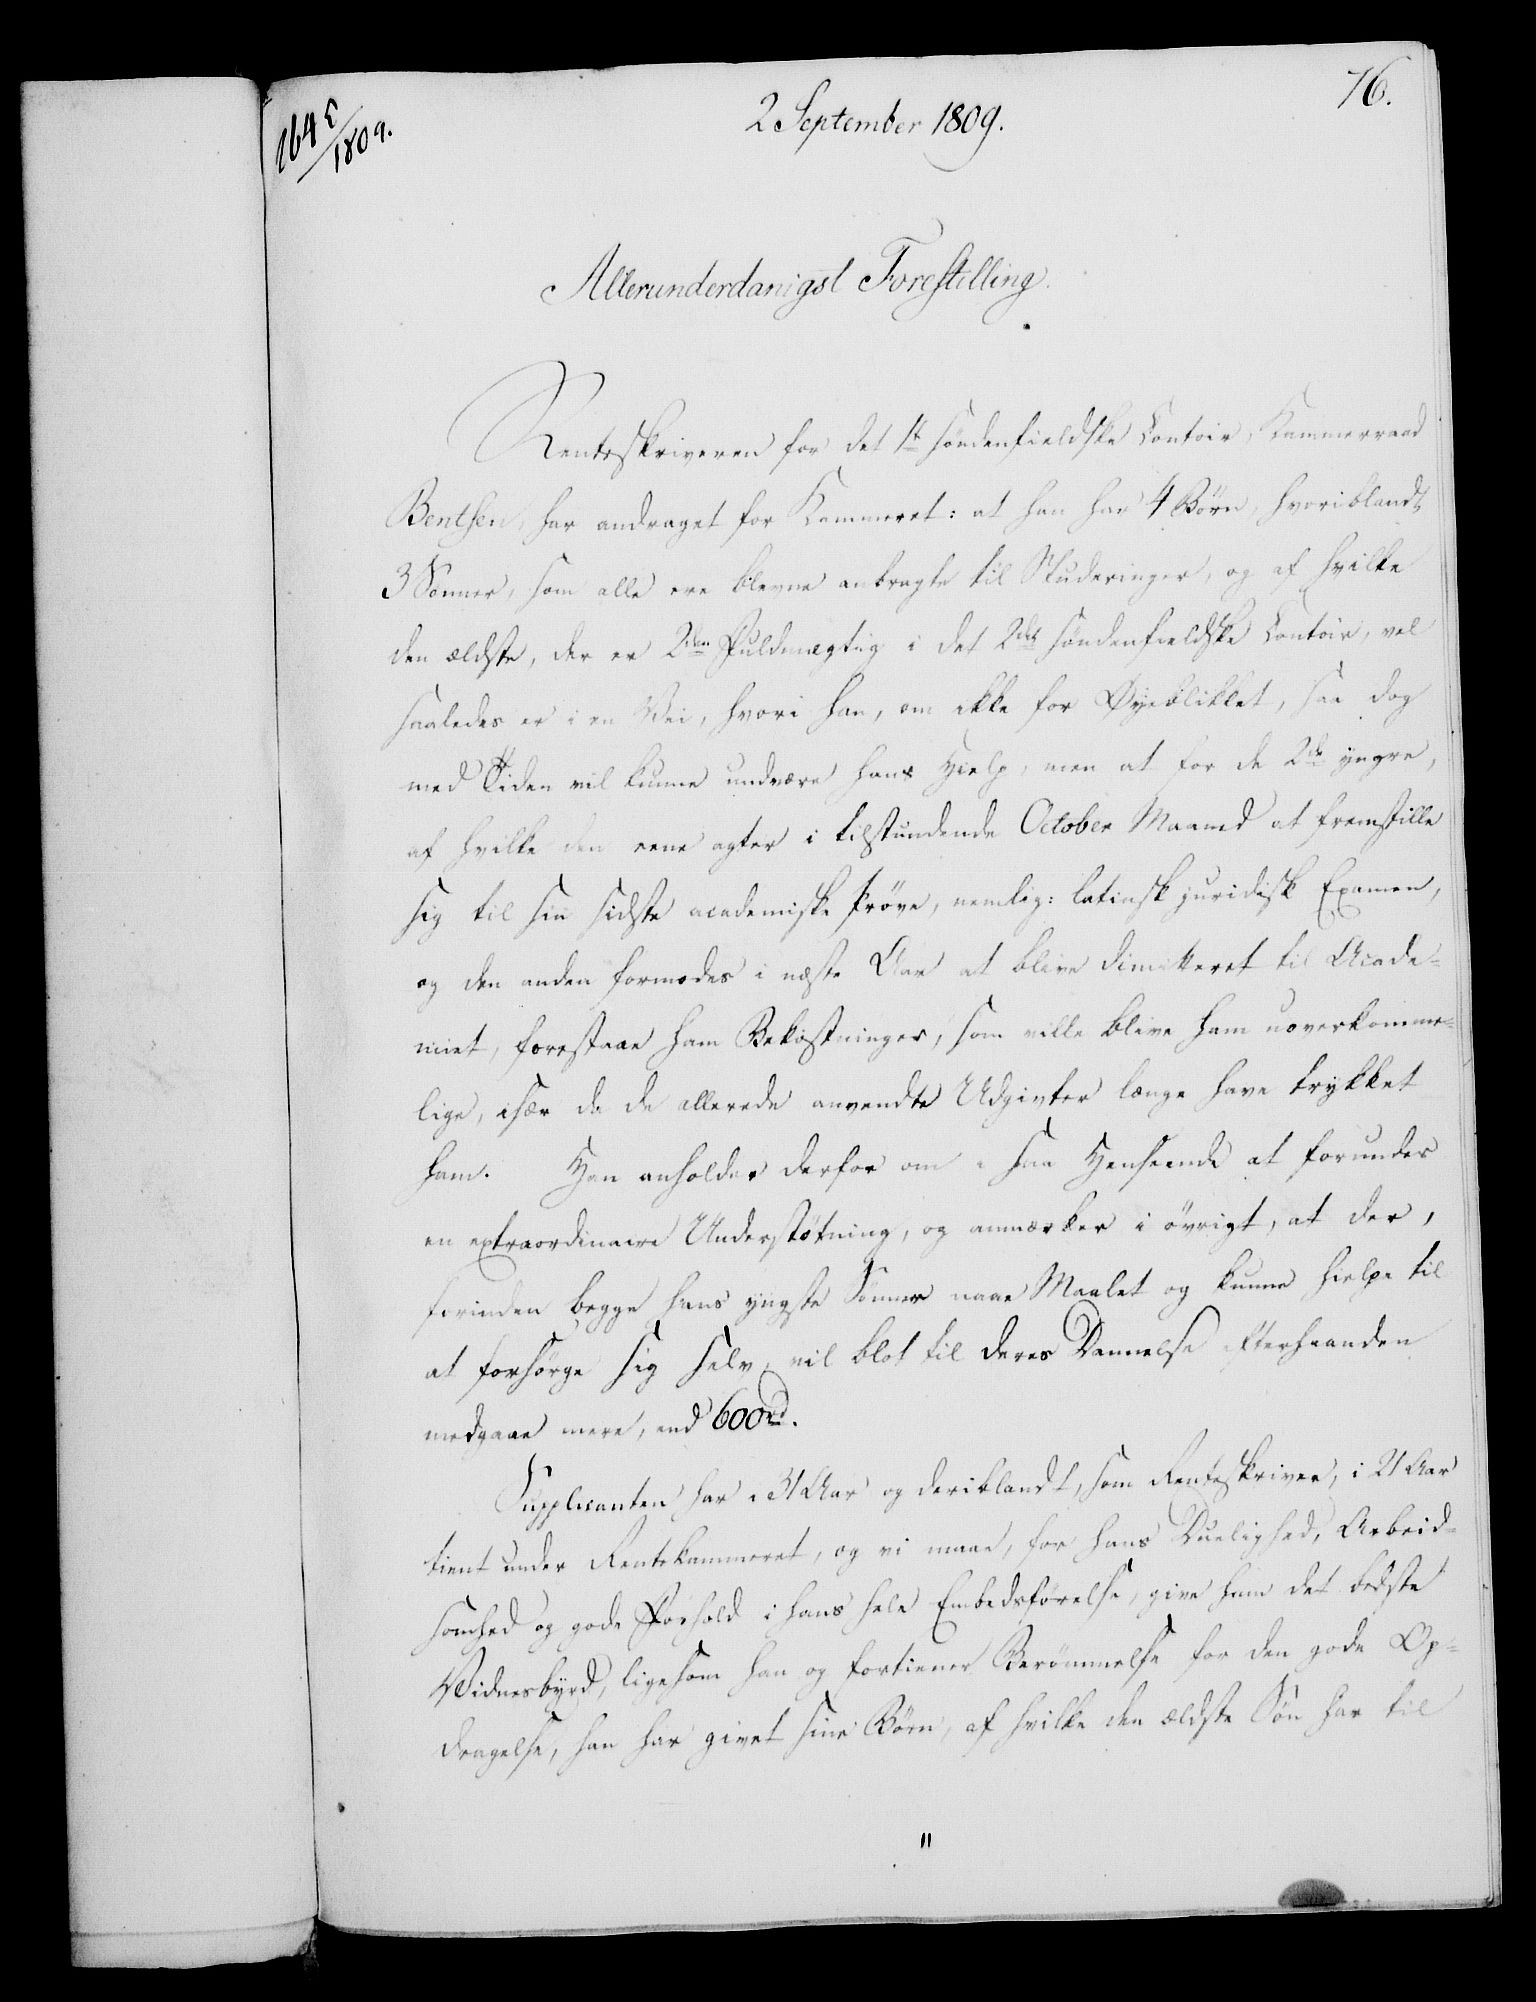 76.
164 C/1809.
2 September 1809.
Allerunderdanigst Forestilling.
Renteskriveren for det 1te söndenfieldske Contoir, Kammerraad
Benthen, har andraget for Kammeret: at han har 4 Börn, hvoriblandt
3 Sönner, som alle ere blevne anbragte til Studeringer, og af hvilke
den ældste, der er 2den Fuldmægtig i det 2det söndenfieldske Contoir, vel
saaledes er i en Vei, hvori han, om ikke for Øyeblikket, saa dog
med Tiden vil kunne undvære hans Hielp, men at for de 2de yngre,
af hvilke den eene agter i tilstundende October Maaned at fremstille
sig til sin sidste academiske Pröve, nemlig: latinsk juridisk Examen,
og den anden formodes i næste Aar at blive dimitteret til Acade-
miet, forestaae ham Bekostninger, som ville blive ham uoverkomme-
lige, især da de allerede anvendte Udgivter længe have trykket
ham. Han anholder derfor om i saa Henseende at forundes
en extraordinaire Understötning, og anmærker i övrigt, at der,
forinden begge hans yngste Sönner naae Maalet og kunne hielpe til
at forsörge sig selv, vil blot til deres Dannelse efterhaanden
medgaae mere, end 600 rd.
Supplicanten har i 31 Aar og deriblandt, som Renteskriver, i 21 Aar
tient under Rentekammeret, og vi maae, for hans Duelighed, Arbeid-
somhed og gode Forhold i hans hele Embedsförelse, give ham det bedste
Vidnesbyrd, ligesom han og fortiener Berömmelse for den gode Op-
dragelse, han har givet sine Börn, af hvilke den ældste Sön har til
"